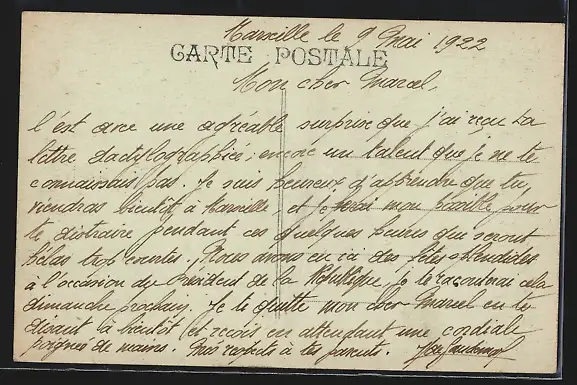 Marseille le 9 Mai 1922
CARTE POSTALE
Mon cher Marcel,
c'est avec une agréable surprise que j'ai reçu ta
lettre dactylographiée; encore un talent que je ne te
connaissais pas. Je suis heureux d'apprendre que tu
viendras bientôt à Marseille, et je ferai mon possible pour
te distraire pendant ces quelques heures qui seront
hélas trop courtes. Nous avons eu ici des fêtes splendides
à l'occasion du Président de la République, je te raconterai cela
dimanche prochain. Je te quitte mon cher Marcel en te
disant à bientôt et reçois en attendant une cordiale
poignée de mains. Mes respects à tes parents.